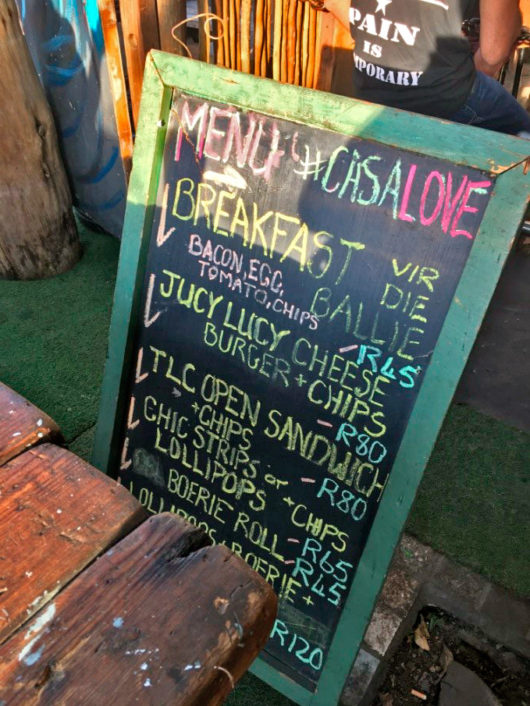 PAIN
IS
MENU #CASALOVE
BREAKFAST VIR
BACON, EGG, DIE
TOMATO, CHIPS BALLIE
-R45
JUCY LUCY CHEESE
BURGER + CHIPS
-R80
TLC OPEN SANDWICH
+CHIPS
-R80
CHIC STRIPS or
LOLLIPOPS + CHIPS
-R65
BOERIE ROLL -R45
LOLLIPOPS, BOERIE +
R120